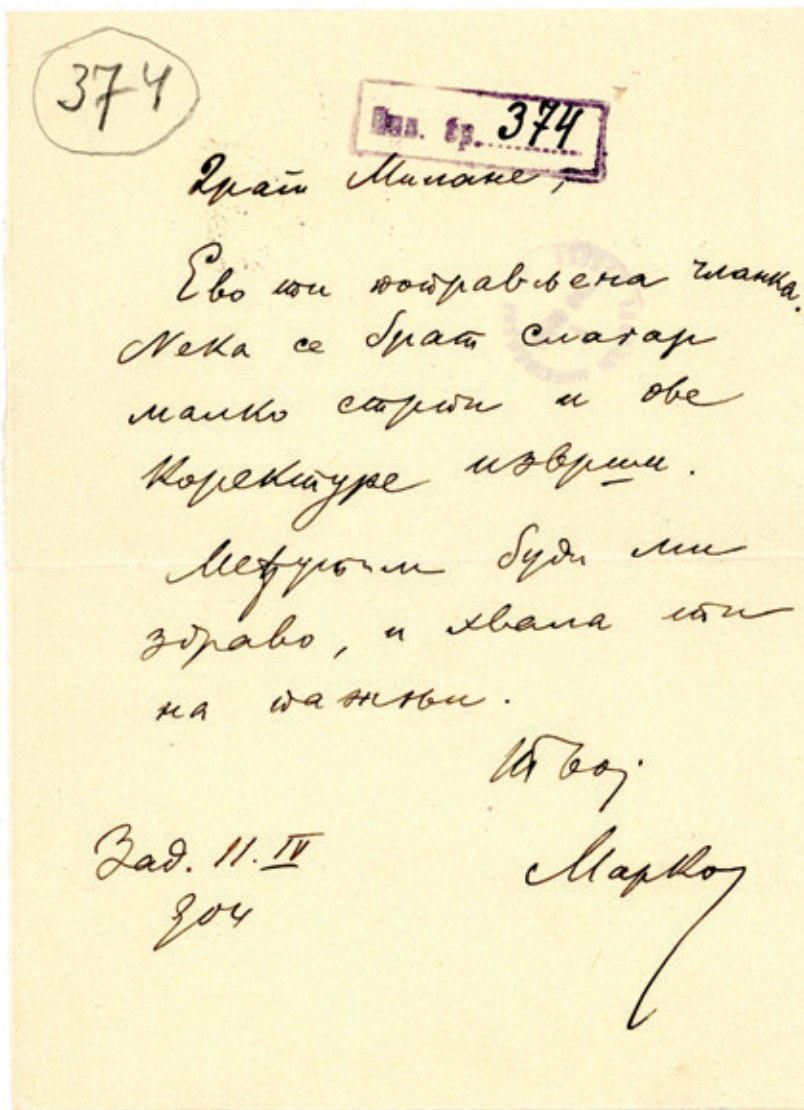 374
Инв. бр. 374
Драги Милане,
Ево ти поправљена чланка.
Нека се брат слагар
малко стрпи и ове
коректуре изврши.
Међутим буди ми
здраво, и хвала ти
на пажњи.
Твој
Марко
Зад. 11. IV
904